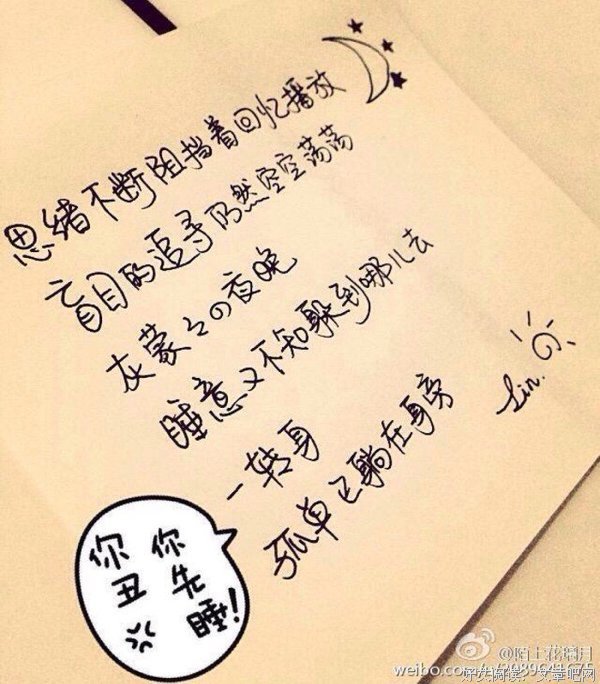 思绪不断阻挡着回忆播放
盲目的追寻仍然空空荡荡
灰蒙々の夜晚
睡意又不知躲到哪儿去
一转身
孤单已躺在身旁
Lin.
你丑
你先睡!
@陌上花稀月
weibo.com/